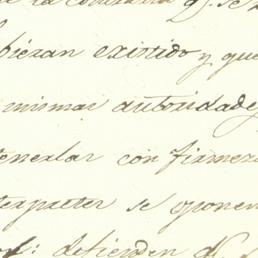 la
existido y que
mismas autoridades
tenerlas con firmeza
terpretes se oponen
defienden